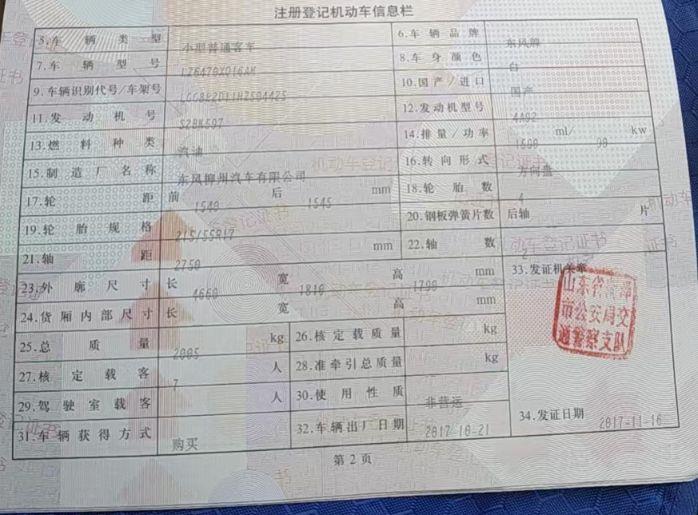 注册登记机动车信息栏
5.车辆类型 小型普通客车 6.车辆品牌 东风牌
7.车辆型号 LZ6470XQ16AM 8.车身颜色 白
9.车辆识别代号/车架号 10.国产/进口 国产
11.发动机号 S2BK597 12.发动机型号 4A92
13.燃料种类 汽油 14.排量/功率 1590 ml/ 90 kw
15.制造厂名称 东风柳州汽车有限公司 16.转向形式 方向盘
17.轮距 前 1540 后 1545 mm 18.轮胎数 4
19.轮胎规格 215/55R17 20.钢板弹簧片数 后轴 片
21.轴距 2750 mm 22.轴数 2
23.外廓尺寸 长 4660 宽 1810 高 1790 mm 33.发证机关章
24.货厢内部尺寸 长 宽 高 mm
山东省菏泽
市公安局交
通警察支队
25.总质量 2005 kg 26.核定载质量 kg
27.核定载客 7 人 28.准牵引总质量 kg
29.驾驶室载客 人 30.使用性质 非营运
31.车辆获得方式 购买 32.车辆出厂日期 2017-10-21 34.发证日期 2017-11-16
第2页